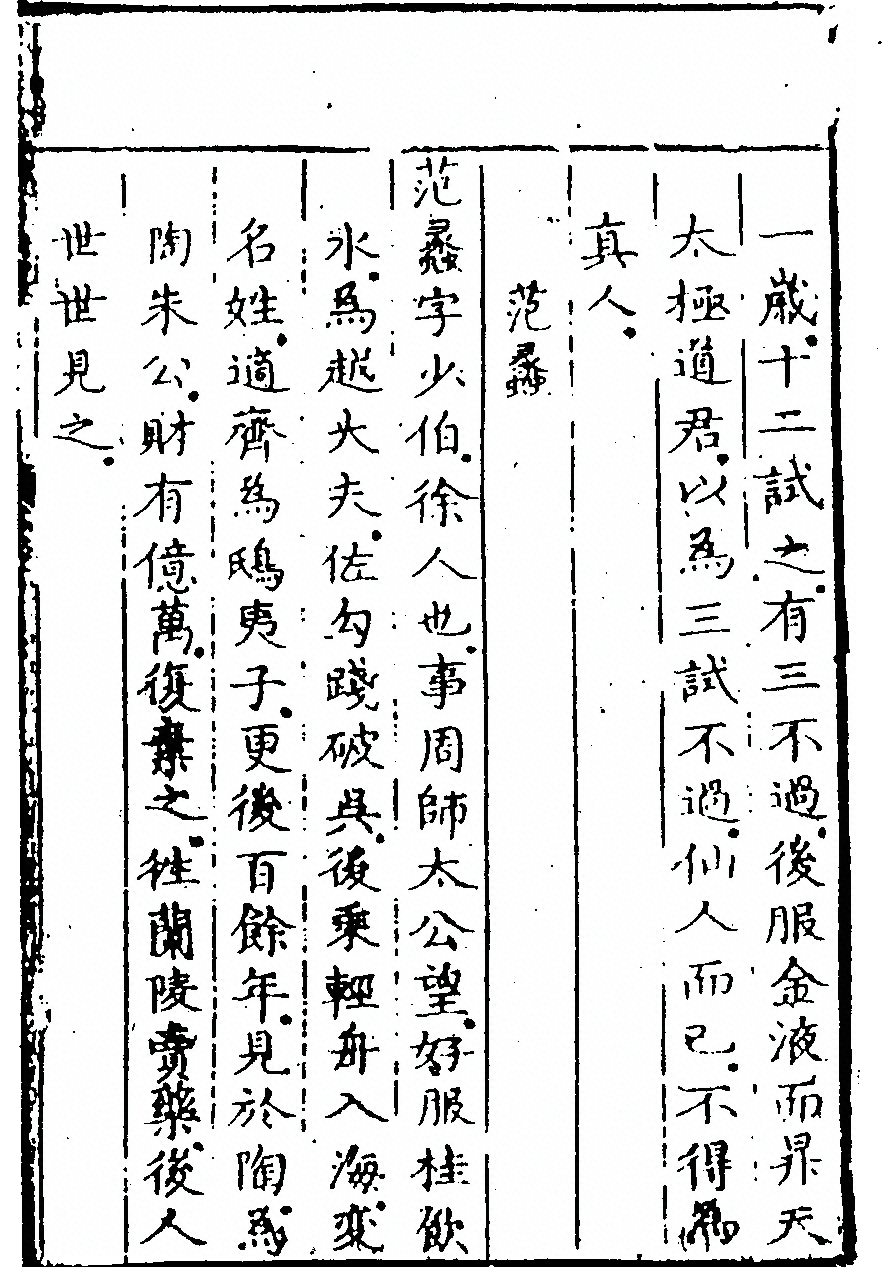 一歲十二試之有三不過後服金液而昇天
太極道君以為三試不過仙人而已不得為
真人
范蠡
范蠡字少伯徐人也事周師太公望好服桂飲
水為越大夫佐勾踐破吳後乘輕舟入海变
名姓適齊為鴟夷子更後百餘年見於陶為
陶朱公財有億萬復棄之徃蘭陵賣藥後人
世世見之